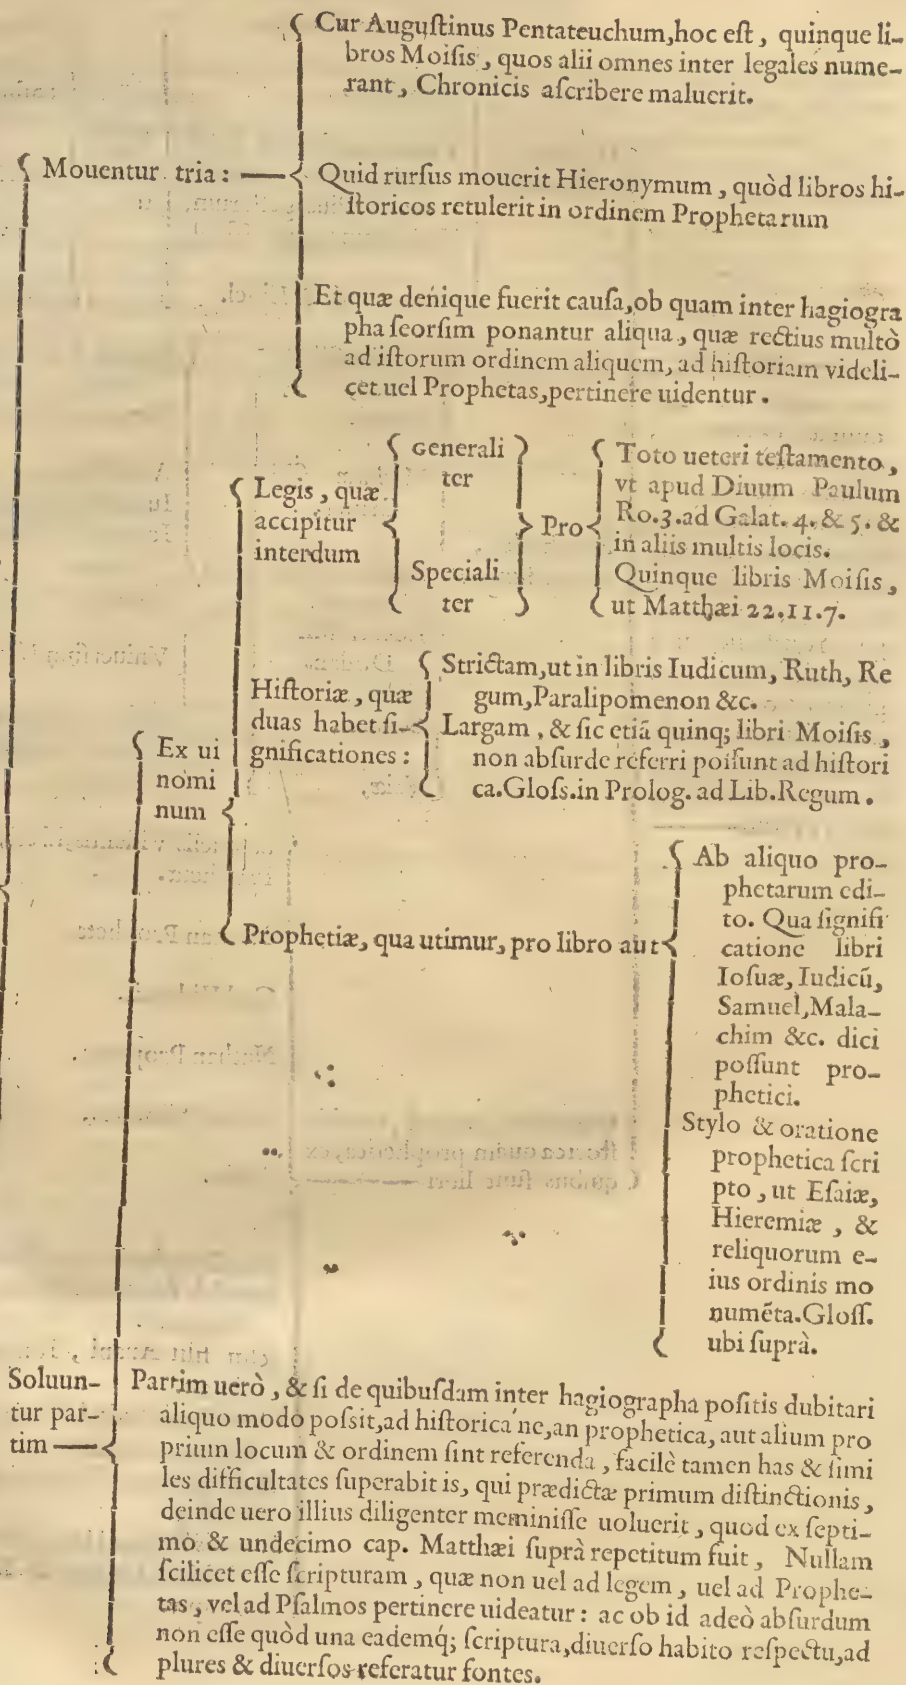 Cur Auguſtinus Pentateuchum,hoc eſt, quinque li-
bros Moiſis, quos alii omnes inter legales nume-
rant, Chronicis aſcribere maluerit.
Mouentur tria:
Quid rurſus mouerit Hieronymum, quòd libros hi-
ſtoricos retulerit in ordinem Prophetarum
Et quæ denique fuerit cauſa,ob quam inter hagiogra
pha ſeorſim ponantur aliqua, quæ rectius multò
ad iſtorum ordinem aliquem, ad hiſtoriam videli-
cet uel Prophetas,pertinere uidentur.
Legis, quæ
accipitur
interdum
Generali
ter
Speciali
ter
Pro
Toto ueteri teſtamento,
vt apud Diuum Paulum
Ro.3.ad Galat. 4. & 5. &
in aliis multis locis.
Quinque libris Moiſis,
ut Matthæi 22.11.7.
Hiſtoriæ, quæ
duas habet ſi-
gnificationes:
Strictam,ut in libris Iudicum, Ruth, Re
gum,Paralipomenon &c.
Largam, & ſic etiã quinq; libri Moiſis,
non abſurde referri poſſunt ad hiſtori
ca.Gloſſ.in Prolog. ad Lib.Regum.
Ex ui
nomi
num
Prophetiæ, qua utimur, pro libro aut
Ab aliquo pro-
phetarum edi-
to. Qua ſignifi
catione libri
Ioſuæ, Iudicũ,
Samuel,Mala-
chim &c. dici
poſſunt pro-
phetici.
Stylo & oratione
prophetica ſcri
pto, ut Eſaiæ,
Hieremiæ, &
reliquorum e-
ius ordinis mo
numẽta.Gloſſ.
ubi ſuprà.
Soluun-
tur par-
tim
Partim uerò, & ſi de quibuſdam inter hagiographa poſitis dubitari
aliquo modo poſsit,ad hiſtorica ne,an prophetica, aut alium pro
prium locum & ordinem ſint referenda, facilè tamen has & ſimi
les difficultates ſuperabit is, qui prædictæ primum diſtinctionis,
deinde uero illius diligenter meminiſſe uoluerit, quod ex ſepti-
mo & undecimo cap. Matthæi ſuprà repetitum fuit, Nullam
ſcilicet eſſe ſcripturam, quæ non uel ad legem, uel ad Prophe-
tas, vel ad Pſalmos pertinere uideatur: ac ob id adeò abſurdum
non eſſe quòd una eademq́; ſcriptura,diuerſo habito reſpectu,ad
plures & diuerſos referatur fontes.